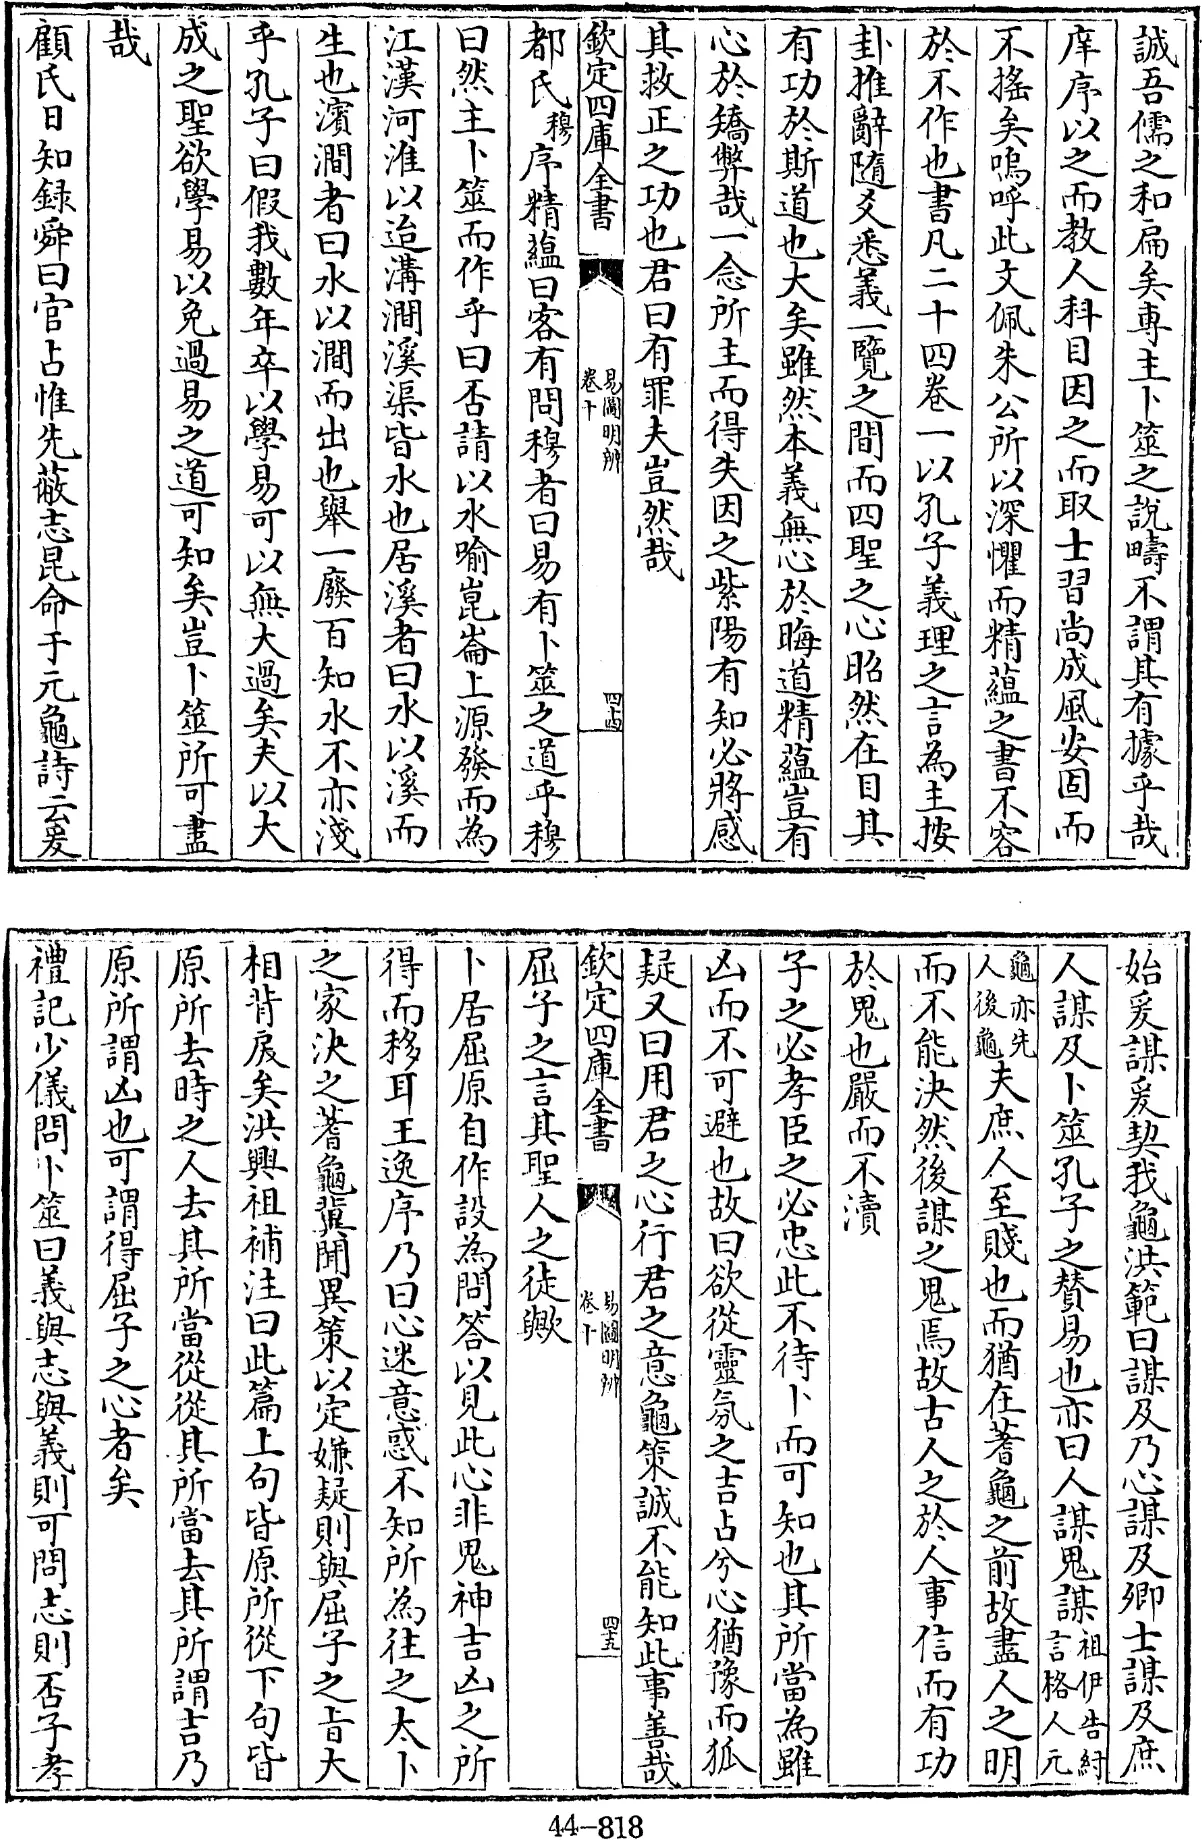 誠吾儒之和扁矣專主卜筮之說疇不謂其有據乎哉
庠序以之而教人科目因之而取士習尚成風安固而
不搖矣嗚呼此文佩朱公所以深懼而精蘊之書不容
於不作也書凡二十四卷一以孔子義理之言為主按
卦推辭隨爻悉義一覽之間而四聖之心昭然在目其
有功於斯道也大矣雖然本義無心於晦道精蘊豈有
心於矯弊哉一念所主而得失因之紫陽有知必將感
其救正之功也君曰有罪夫豈然哉
欽定四庫全書
易圖明辨
卷十
四十四
都氏穆序精蘊曰客有問穆者曰易有卜筮之道乎穆
曰然主卜筮而作乎曰否請以水喻崑崙上源發而為
江漢河淮以迨溝澗溪渠皆水也居溪者曰水以溪而
生也濱澗者曰水以澗而出也舉一廢百知水不亦淺
乎孔子曰假我數年卒以學易可以無大過矣夫以大
成之聖欲學易以免過易之道可知矣豈卜筮所可盡
哉
顧氏日知録舜曰官占惟先蔽志昆命于元龜詩云爰
始爰謀爰契我龜洪範曰謀及乃心謀及卿士謀及庶
人謀及卜筮孔子之贊易也亦曰人謀鬼謀祖伊告紂言格人元
龜亦先人後龜夫庶人至賤也而猶在蓍龜之前故盡人之明
而不能決然後謀之鬼焉故古人之於人事信而有功
於鬼也嚴而不瀆
子之必孝臣之必忠此不待卜而可知也其所當為雖
凶而不可避也故曰欲從靈氛之吉占兮心猶豫而狐
疑又曰用君之心行君之意龜策誠不能知此事善哉
欽定四庫全書
易圖明辨
卷十
四十五
屈子之言其聖人之徒歟
卜居屈原自作設為問答以見此心非鬼神吉凶之所
得而移耳王逸序乃曰心迷意惑不知所為往之太卜
之家決之蓍龜冀聞異策以定嫌疑則與屈子之旨大
相背戾矣洪興祖補注曰此篇上句皆原所從下句皆
原所去時之人去其所當從從其所當去其所謂吉乃
原所謂凶也可謂得屈子之心者矣
禮記少儀問卜筮曰義與志與義則可問志則否子孝
44-818